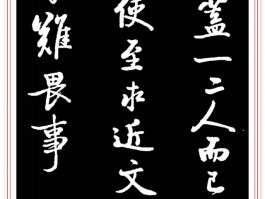 蓋一二人而已
使至求近文
難畏事